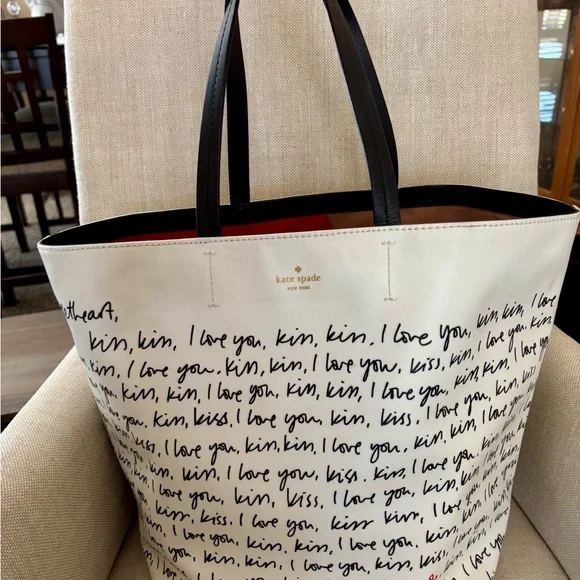 kate spade
NEW YORK
etheart,
kiss, kiss, I love you, kiss, kiss. I love you, kiss, kiss, I love
kiss, I love you, kiss, kiss, I love you, kiss, kiss, I love you, kiss.
kiss, kiss, I love you, kiss, kiss, I love you, kiss, kiss, I love
kiss, kiss, I love you, kiss, kiss. I love you, kiss, kiss
kiss, I love you, kiss, kiss, I love you, kiss, kiss, I love you
kiss, kiss, I love you, kiss, kiss, I love you, kiss
I love you, kiss, kiss, I love you, kiss, kiss
kiss, kiss. I love you kiss kiss, I love you, kiss
I love you, kiss, kiss, I love you, kiss, kiss
kiss, kiss, I love you, kiss, kiss.
I love you